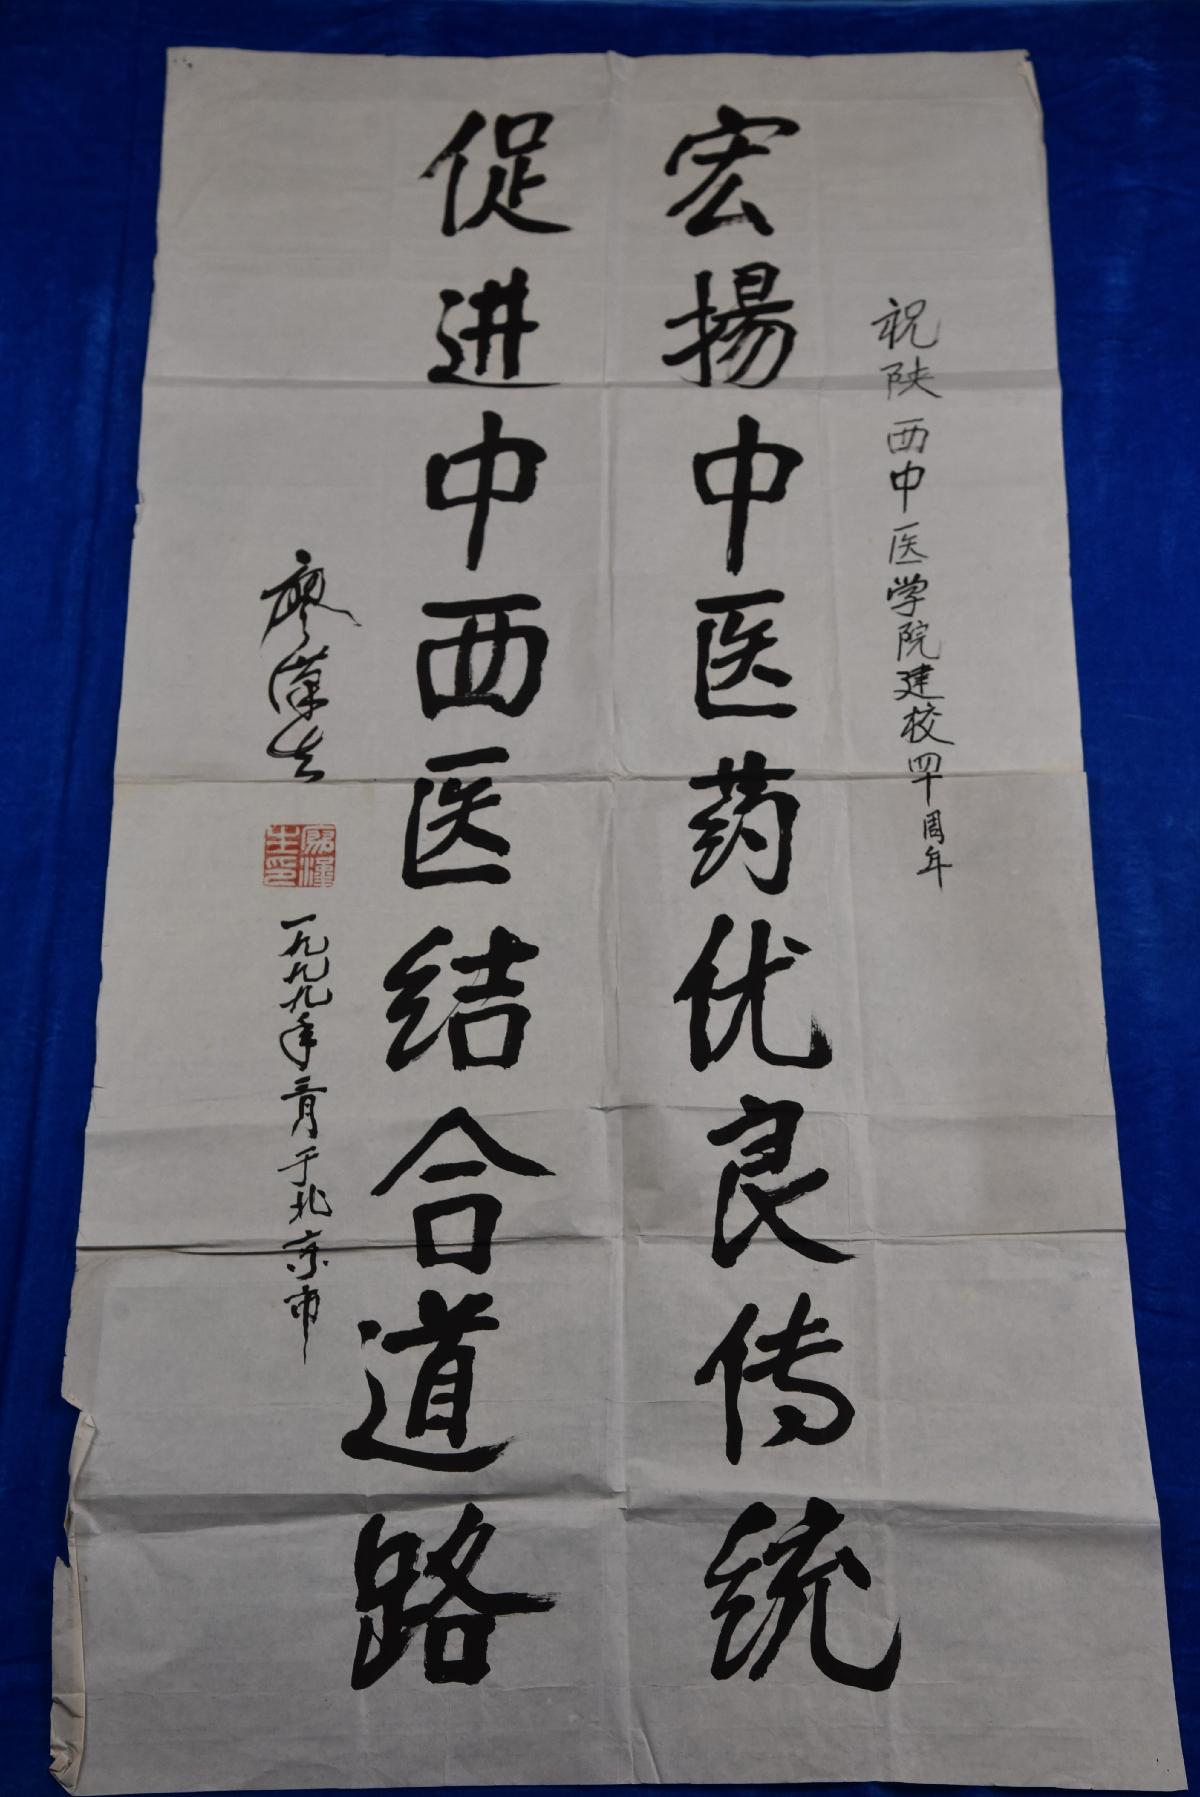 祝陕西中医学院建校四十周年
宏揚中医药优良传统
促进中西医结合道路
廖漢生
廖漢生印
一九九九年三月于北京市